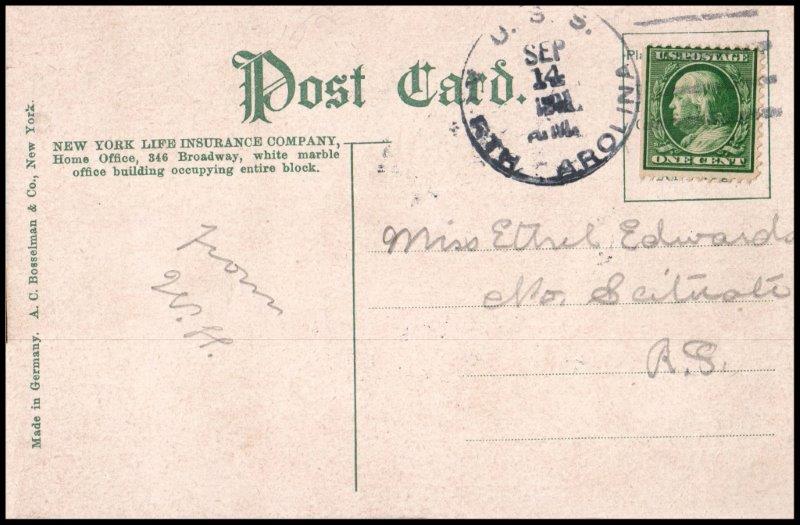 Post Card.
NEW YORK LIFE INSURANCE COMPANY,
Home Office, 346 Broadway, white marble
office building occupying entire block.
Made in Germany. A. C. Bosselman & Co., New York.
From
W. H.
U. S. S.
SEP
14
RTH CAROLINA
U.S. POSTAGE
ONE CENT
Miss Ethel Edwards
No. Scituate
R.I.